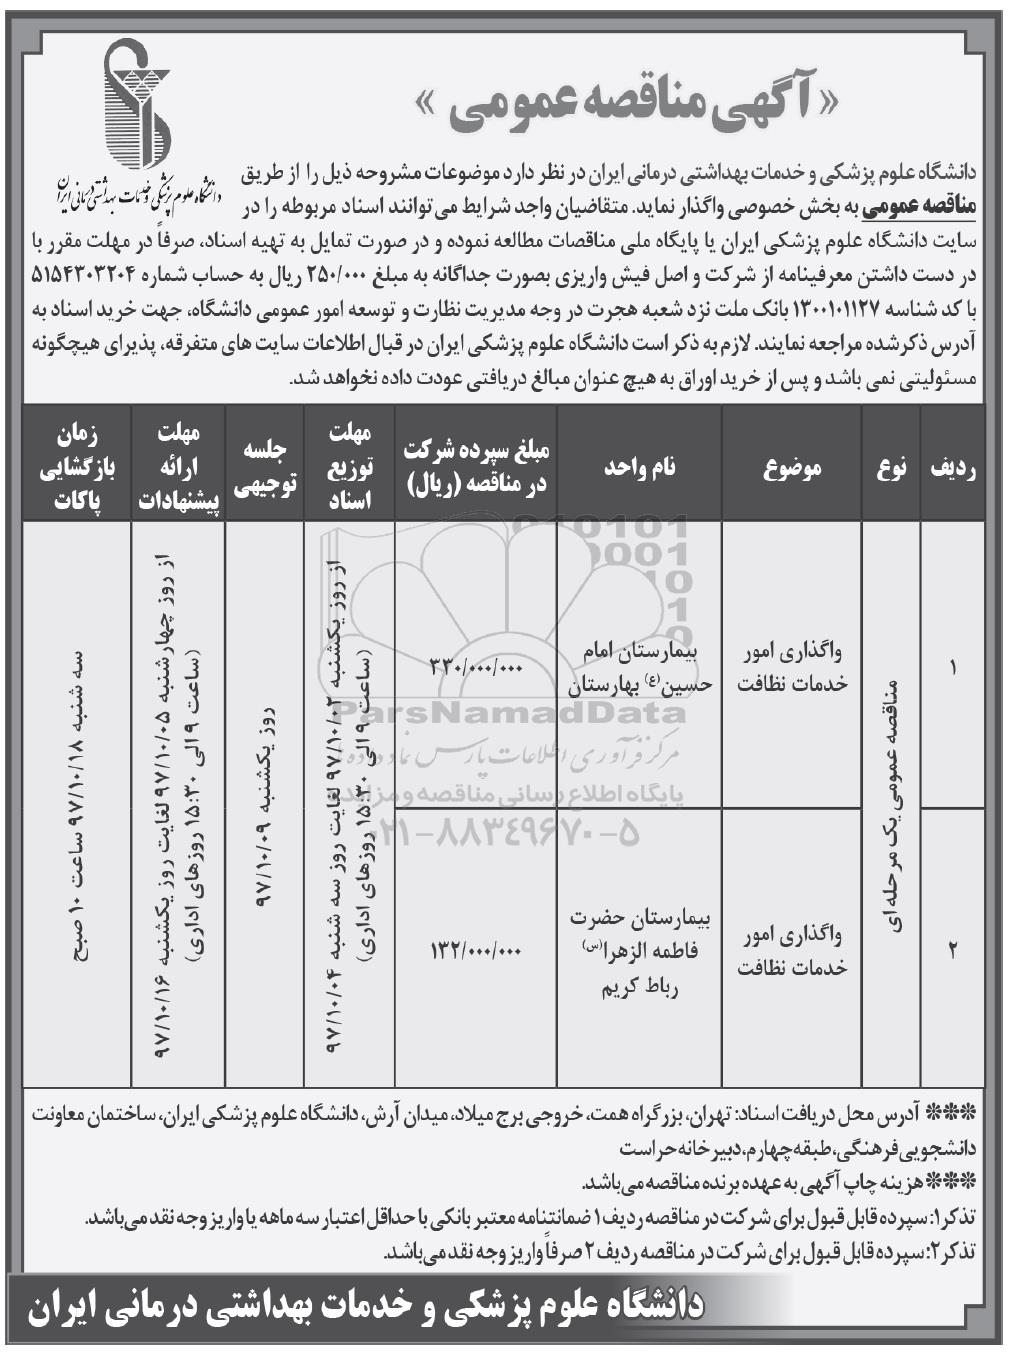 « آگهی مناقصه عمومی »
دانشگاه علوم پزشکی و خدمات بهداشتی درمانی ایران
دانشگاه علوم پزشکی و خدمات بهداشتی درمانی ایران در نظر دارد موضوعات مشروحه ذیل را از طریق
مناقصه عمومی به بخش خصوصی واگذار نماید. متقاضیان واجد شرایط می توانند اسناد مربوطه را در
سایت دانشگاه علوم پزشکی ایران یا پایگاه ملی مناقصات مطالعه نموده و در صورت تمایل به تهیه اسناد، صرفاً در مهلت مقرر با
در دست داشتن معرفینامه از شرکت و اصل فیش واریزی بصورت جداگانه به مبلغ ۲۵۰/۰۰۰ ریال به حساب شماره ۵۱۵۴۳۰۳۲۰۴
با کد شناسه ۱۳۰۰۱۰۱۱۲۷ بانک ملت نزد شعبه هجرت در وجه مدیریت نظارت و توسعه امور عمومی دانشگاه، جهت خرید اسناد به
آدرس ذکرشده مراجعه نمایند. لازم به ذکر است دانشگاه علوم پزشکی ایران در قبال اطلاعات سایت های متفرقه، پذیرای هیچگونه
مسئولیتی نمی باشد و پس از خرید اوراق به هیچ عنوان مبالغ دریافتی عودت داده نخواهد شد.
ردیف
نوع
موضوع
نام واحد
مبلغ سپرده شرکت
در مناقصه (ریال)
مهلت
توزیع
اسناد
جلسه
توجیهی
مهلت
ارائه
پیشنهادات
زمان
بازگشایی
پاکات
۱
مناقصه عمومی یک مرحله‌ای
واگذاری امور
خدمات نظافت
بیمارستان امام
حسین(ع) بهارستان
۳۳۰/۰۰۰/۰۰۰
از روز یکشنبه ۹۷/۱۰/۰۲ لغایت روز سه شنبه ۹۷/۱۰/۰۴
(ساعت ۹ الی ۱۵:۳۰ روزهای اداری)
روز یکشنبه ۹۷/۱۰/۰۹
از روز چهارشنبه ۹۷/۱۰/۰۵ لغایت روز یکشنبه ۹۷/۱۰/۱۶
(ساعت ۹ الی ۱۵:۳۰ روزهای اداری)
سه شنبه ۹۷/۱۰/۱۸ ساعت ۱۰ صبح
۲
واگذاری امور
خدمات نظافت
بیمارستان حضرت
فاطمه الزهرا(س)
رباط کریم
۱۳۲/۰۰۰/۰۰۰
ParsNamadData
مرکز فرآوری اطلاعات پارس نماد داده ها
پایگاه اطلاع رسانی مناقصه و مزایده
۰۲۱-۸۸۳۴۹۶۷۰-۵
*** آدرس محل دریافت اسناد: تهران، بزرگراه همت، خروجی برج میلاد، میدان آرش، دانشگاه علوم پزشکی ایران، ساختمان معاونت
دانشجویی فرهنگی، طبقه چهارم، دبیرخانه حراست
*** هزینه چاپ آگهی به عهده برنده مناقصه می‌باشد.
تذکر۱: سپرده قابل قبول برای شرکت در مناقصه ردیف ۱ ضمانتنامه معتبر بانکی با حداقل اعتبار سه ماهه یا واریز وجه نقد می‌باشد.
تذکر۲: سپرده قابل قبول برای شرکت در مناقصه ردیف ۲ صرفاً واریز وجه نقد می‌باشد.
دانشگاه علوم پزشکی و خدمات بهداشتی درمانی ایران